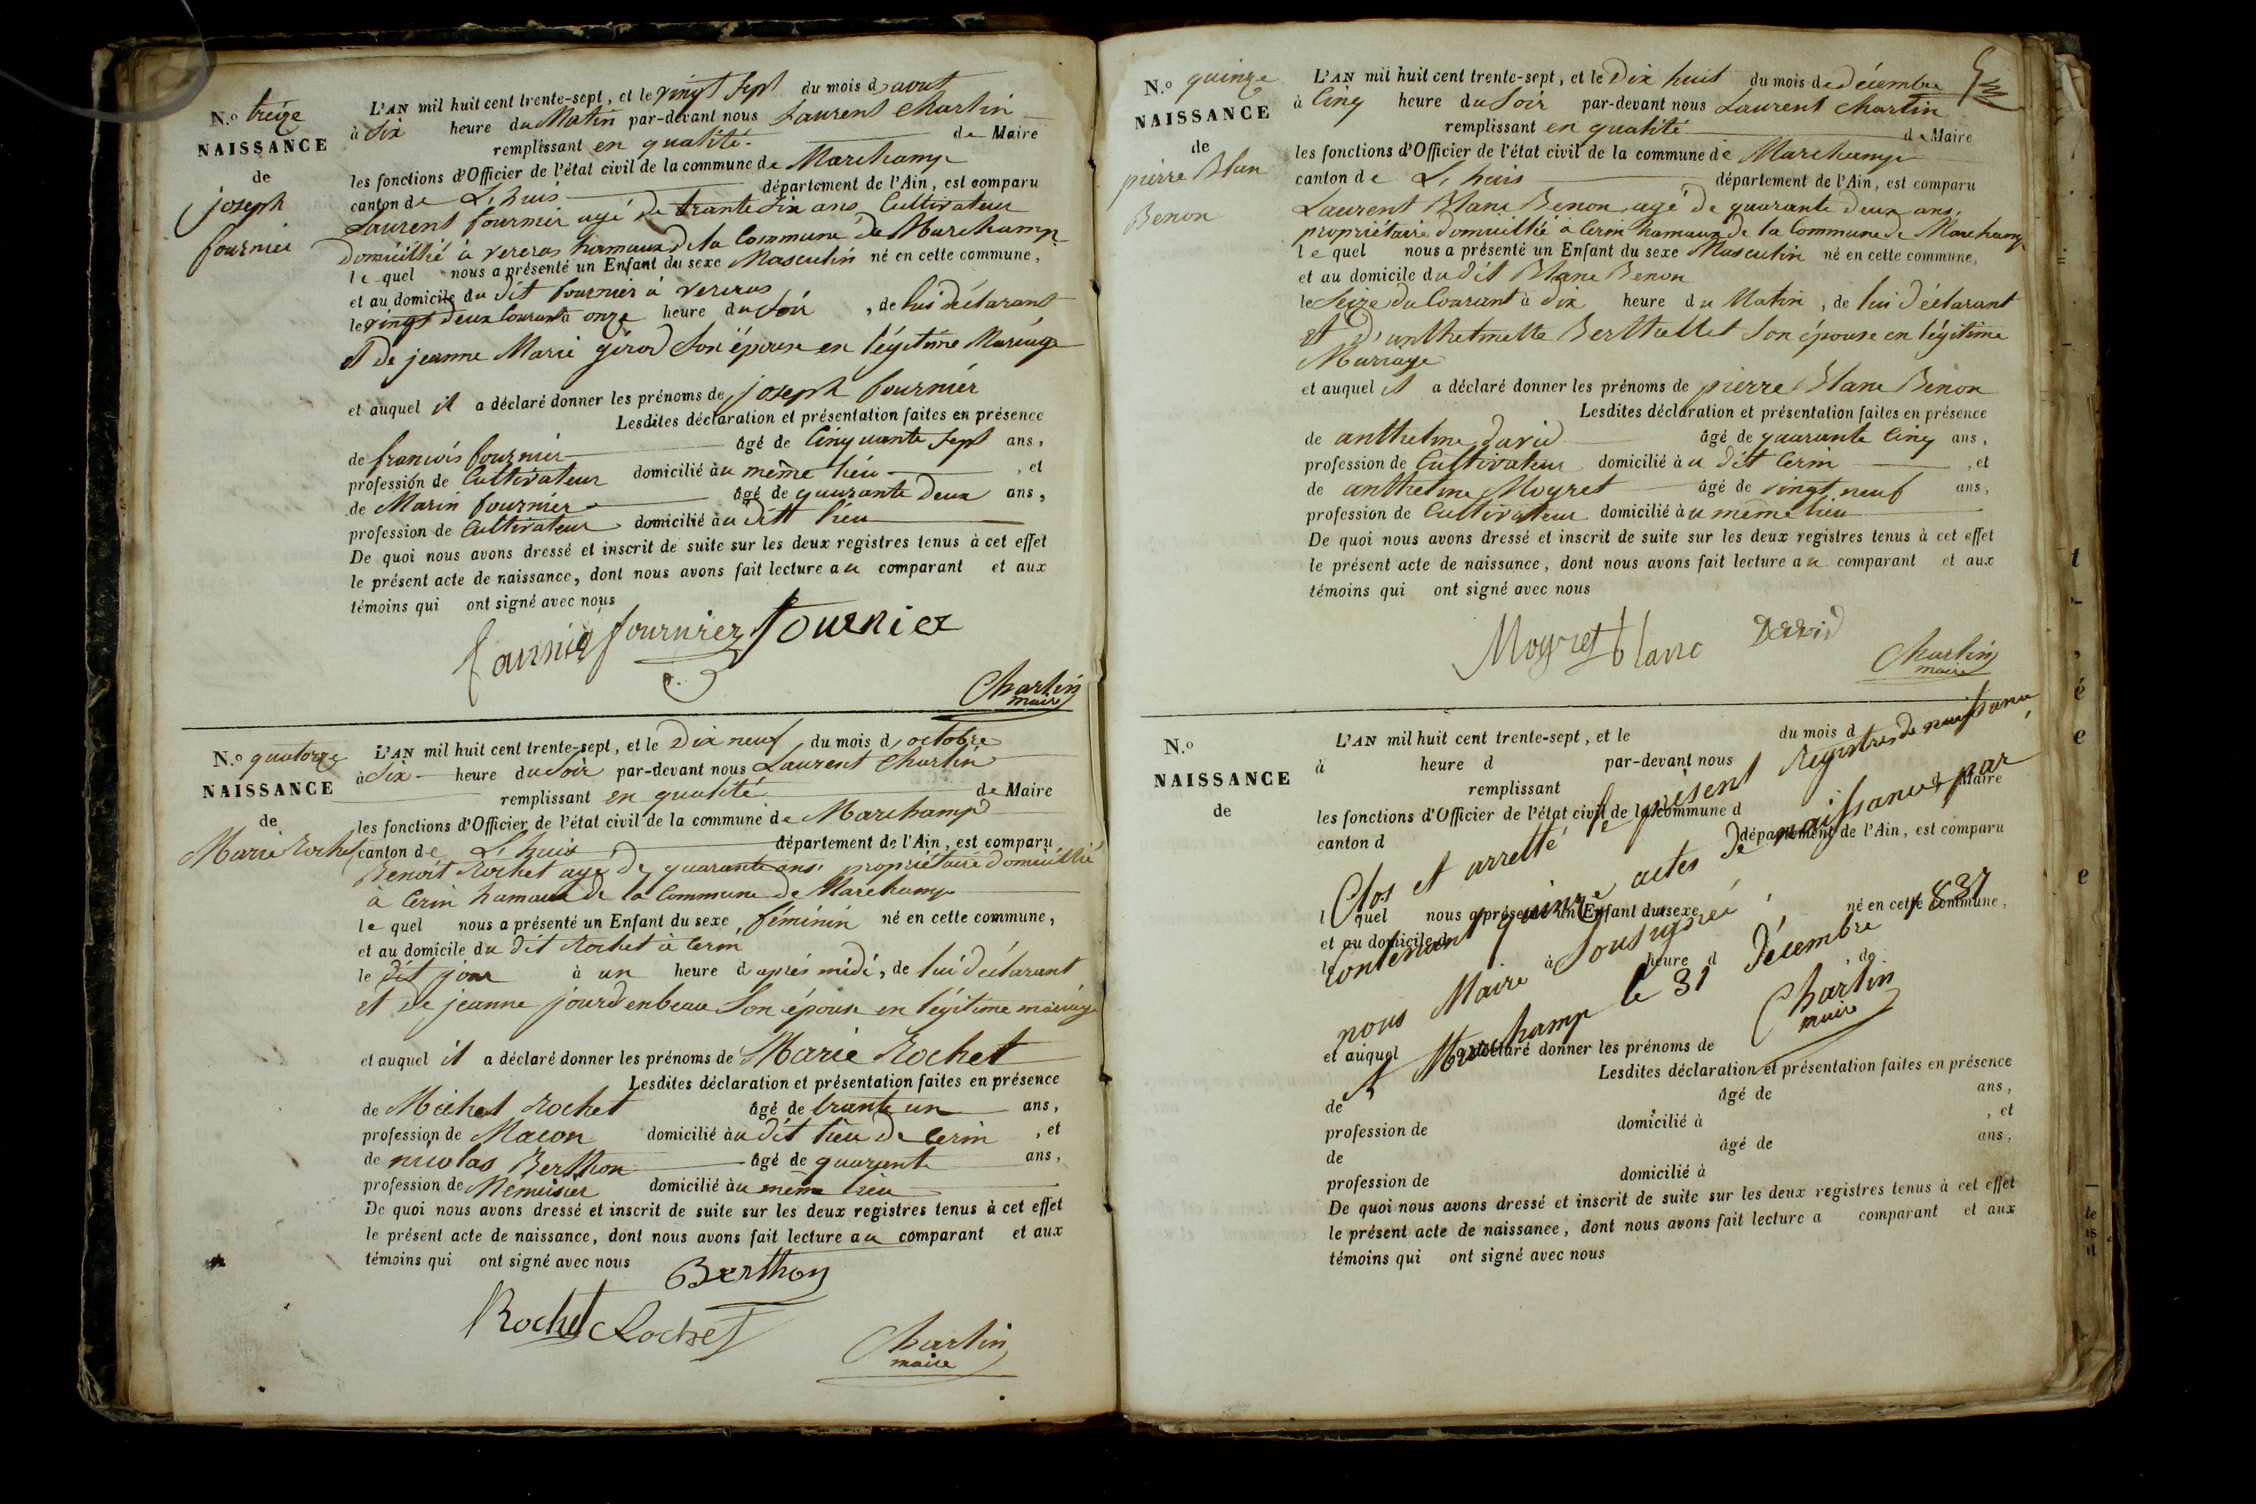 N.o treize
NAISSANCE
de
joseph
fournier
L'AN mil huit cent trente-sept, et le vingt sept du mois d'avout
à Six heure du Matin par-devant nous Laurent Charlin
remplissant en qualité de Maire
les fonctions d'Officier de l'état civil de la commune de Marchamp
canton de L'huis département de l'Ain, est comparu
Laurent fournier agé de trante Six ans Cultivateur
domicillié à vereras hamaux de la Commune de Marchamp
le quel nous a présenté un Enfant du sexe Masculin né en cette commune,
et au domicile du dit fournier à vereras
le vingt deux Courant à onze heure du Soir, de lui déclarant
et de jeanne Marie girod Son épouse en légitime Mariage
et auquel il a déclaré donner les prénoms de joseph fournier
Lesdites déclaration et présentation faites en présence
de francois fournier âgé de Cinquante Sept ans,
profession de Cultivateur domicilié à u même lieu, et
de Marin fournier âgé de quarante deux ans,
profession de Cultivateur domicilié à u ditt lieu
De quoi nous avons dressé et inscrit de suite sur les deux registres tenus à cet effet
le présent acte de naissance, dont nous avons fait lecture au comparant et aux
témoins qui ont signé avec nous
fournier fournier fournier
Charlin
maire
N.o quatorze
NAISSANCE
de
Marie Rochet
L'AN mil huit cent trente-sept, et le Dix neuf du mois d'octobre
à Six heure du Soir par-devant nous Laurent Charlin
remplissant en qualité de Maire
les fonctions d'Officier de l'état civil de la commune de Marchamp
canton de L'huis département de l'Ain, est comparu
Benoit Rochet agé de quarante ans, propriétaire domicillié
à Cerin hamaux de la Commune de Marchamp
le quel nous a présenté un Enfant du sexe féminin né en cette commune,
et au domicile du dit Rochet à Cerin
le dit jour à un heure d'aprés midi, de lui déclarant
et de jeanne jourdenbeau Son épouse en légitime mariage
et auquel il a déclaré donner les prénoms de Marie Rochet
Lesdites déclaration et présentation faites en présence
de Michel Rochet âgé de trante un ans,
profession de Macon domicilié à u dit lieu de Cerin, et
de nicolas Berthon âgé de quarante ans,
profession de Menuisier domicilié à u même lieu
De quoi nous avons dressé et inscrit de suite sur les deux registres tenus à cet effet
le présent acte de naissance, dont nous avons fait lecture au comparant et aux
témoins qui ont signé avec nous
Berthon
Rochet Rochet
Charlin
maire
N.o quinze
NAISSANCE
de
pierre Blan
Benon
L'AN mil huit cent trente-sept, et le Dix huit du mois de décembre
à Cinq heure du Soir par-devant nous Laurent Charlin
remplissant en qualité de Maire
les fonctions d'Officier de l'état civil de la commune de Marchamp
canton de L'huis département de l'Ain, est comparu
Laurent Blanc Benon agé de quarante deux ans,
propriétaire domicillié à Cerin hamaux de la Commune de Marchamp
le quel nous a présenté un Enfant du sexe Masculin né en cette commune,
et au domicile du dit Blanc Benon
le Seize du Courant à dix heure du Matin, de lui déclarant
et d'anthelmette Berthellet Son épouse en légitime
Mariage
et auquel il a déclaré donner les prénoms de pierre Blanc Benon
Lesdites déclaration et présentation faites en présence
de anthelme David âgé de quarante Cinq ans,
profession de Cultivateur domicilié à u dit Cerin, et
de anthelme Moyret âgé de vingt neuf ans,
profession de Cultivateur domicilié à u même lieu
De quoi nous avons dressé et inscrit de suite sur les deux registres tenus à cet effet
le présent acte de naissance, dont nous avons fait lecture au comparant et aux
témoins qui ont signé avec nous
Moyret blanc David
Charlin
maire
N.o
NAISSANCE
de
L'AN mil huit cent trente-sept, et le du mois d
à heure d par-devant nous
remplissant d Maire
les fonctions d'Officier de l'état civil de la commune d
canton d département de l'Ain, est comparu
l quel nous a présenté un Enfant du sexe né en cette commune,
et au domicile d
le à heure d, de
et auquel a déclaré donner les prénoms de
Lesdites déclaration et présentation faites en présence
de âgé de ans,
profession de domicilié à, et
de âgé de ans,
profession de domicilié à
De quoi nous avons dressé et inscrit de suite sur les deux registres tenus à cet effet
le présent acte de naissance, dont nous avons fait lecture a comparant et aux
témoins qui ont signé avec nous
Clos et arretté le présent Registres de naissance
Contenant quinze actes de naissances par
nous Maire Sousigné,
à Marchamp le 31 Décembre 1837
Charlin
maire